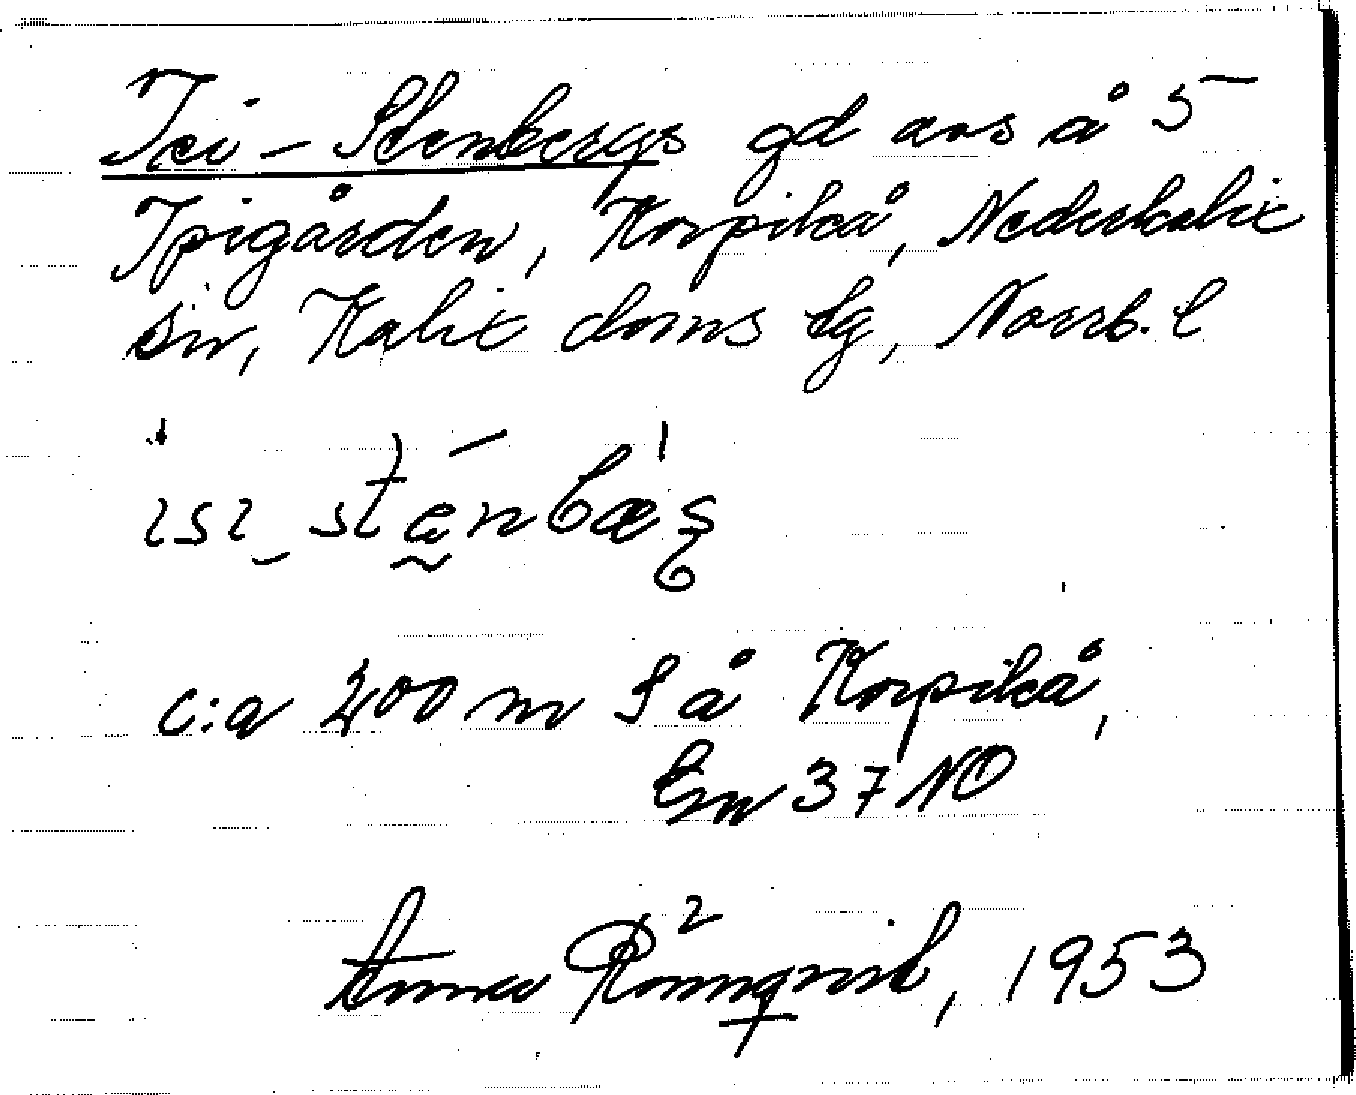 Isi-Stenbergs gd avs å 5
Ipigården, Korpikå, Nederkalix
sn, Kalix doms lg, Norrb. l
ɩsɩ_stenbæş
c:a 200 m S å Korpikå,
En 37 NO
Anna Rönnqvist, 1953